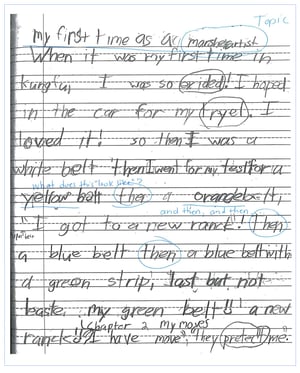 Topic
my first time as a marshelartist
When it was my first time in
kungfu, I was so exided! I hoped
in the car for my tryel. I
loved it! so then I was a
white belt then I went for my test for a
what does this look like?
yellow balt then a orange belt,
and then, and then
I got to a new ranck! then
a blue belt then a blue belt with
a green strip, last but not
leaste, my green belt!! a new
ranck!!
Chapter 2 My moves
I have move, they pretect me.